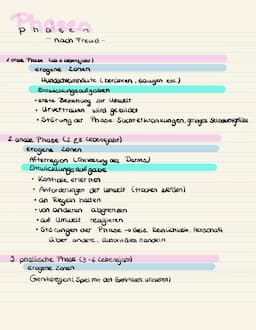 Phasen
Phasen
- nach Freud -
1. orale Phase (1. Lebensjahr)
erogene Zonen
Mundschleimhäute (berühren, saugen etc.)
Entwicklungsaufgaben
• erste Beziehung zur Umwelt
• Urvertrauen wird gebildet
• Störung der Phase: Suchterkrankungen, geringes Selbstwertgefühl
2. anale Phase (2.-3. Lebensjahr)
erogene Zonen
Afterregion (Entleerung des Darms)
Entwicklungsaufgabe
• Kontrolle erlernen
• Anforderungen der Umwelt (trocken werden)
• an Regeln halten
• von anderen abgrenzen
• auf Umwelt reagieren
• Störungen der Phase → Geiz, Reinlichkeit, Herrschaft
über andere, autoritäres Handeln
3. phallische Phase (3-6 Lebensjahr)
erogene Zonen
Genitalregion (Spiel mit den Genitalien, urinieren)